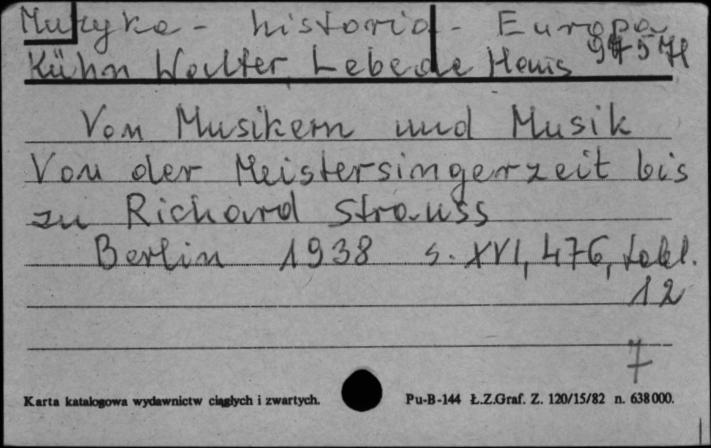 Muzyka - historia - Europa
Kühn Walter, Lebede Hans 9457 H
Von Musikern und Musik
Von der Meistersingerzeit bis
zu Richard Strauss
Berlin 1938 s. XVI, 476, tabl.
12
7
Karta katalogowa wydawnictw ciągłych i zwartych. Pu-B-144 Ł.Z.Graf. Z. 120/15/82 n. 638000.